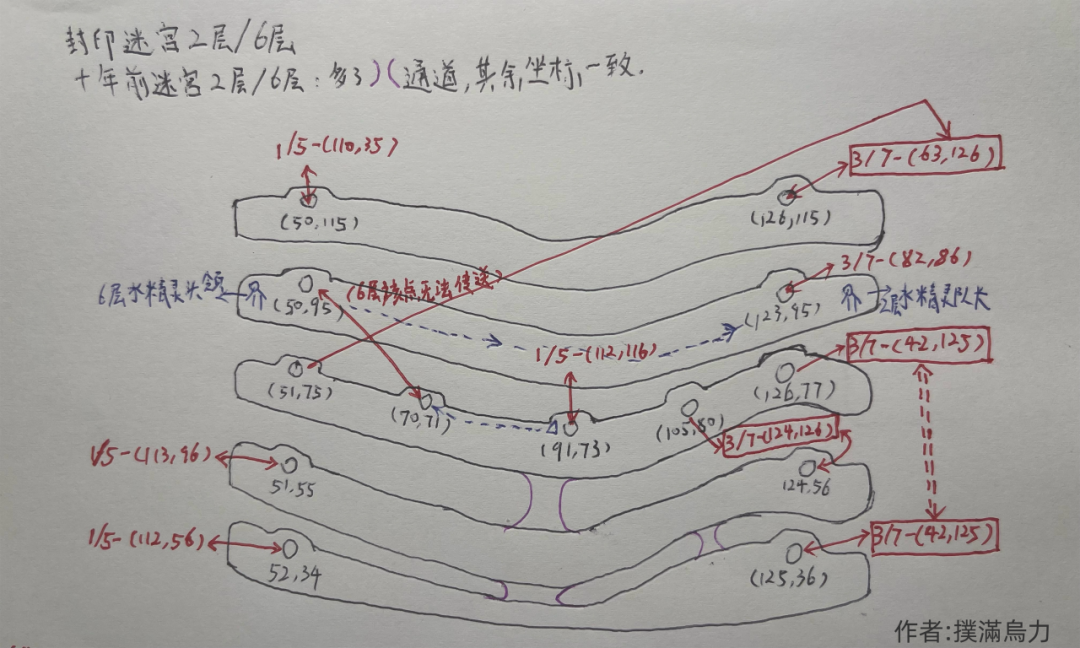 封印迷宫2层/6层
十年前迷宫2层/6层:多了)(通道,其余坐标一致.
1/5-(110,35)
3/7-(63,126)
(50,115)
(126,115)
3/7-(82,86)
6层水精灵头领
界
(50,95)
(6层该点无法传送)
(123,95)
界
2层水精灵队长
1/5-(112,116)
3/7-(42,125)
(51,75)
(70,71)
(91,73)
(105,80)
(126,77)
3/7-(124,126)
1/5-(113,96)
51,55
124,56
1/5-(112,56)
52,34
3/7-(42,125)
(125,36)
作者:撲滿烏力